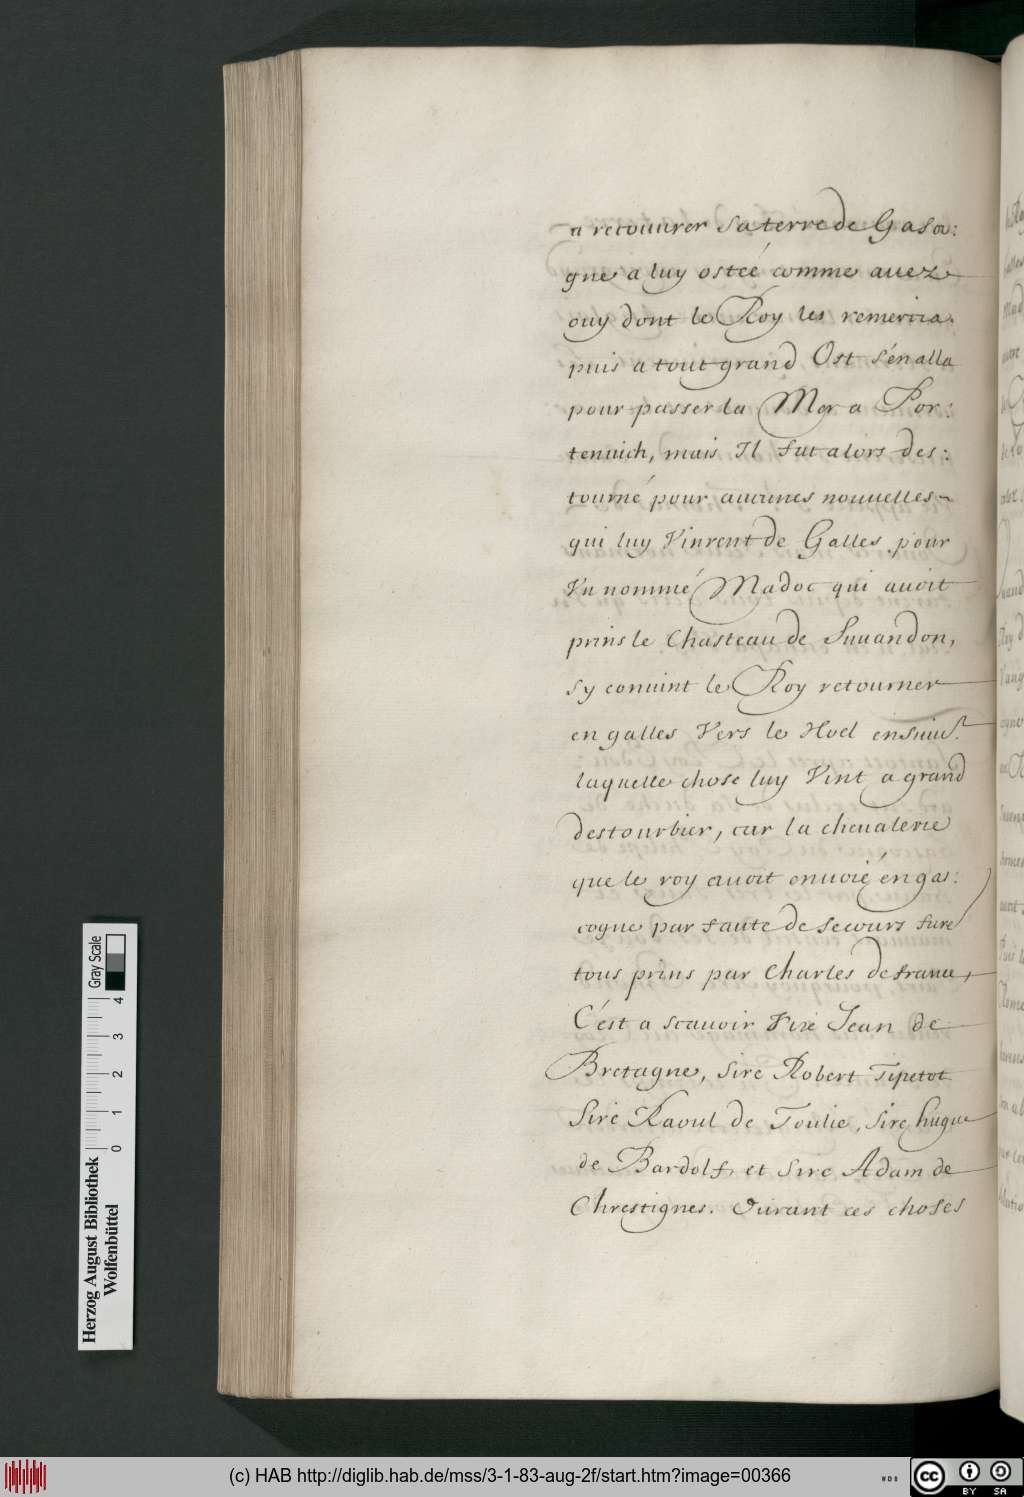 a recouurer sa terre de Gasco:
gne a luy ostée comme auez
ouy dont le Roy les remercia.
puis a tout grand Ost s'en alla
pour passer la Mer a Por:
temuich, mais Il fut alors des:
tourné pour aucunes nouuelles
qui luy Vinrent de Galles pour
Vn nommé Madoc qui auoit
prins le Chasteau de Snuandon,
sy conuint le Roy retourner
en galles Vers le Noel ensuiut.
laquelle chose luy Vint a grand
destourbier, car la cheualerie
que le roy auoit enuoié en gas:
cogne par faute de secours fure
tous prins par Charles de france,
C'est a scauoir Sire Jean de
Bretagne, Sire Robert Tipetot
Sire Raoul de Toulie, Sire hugue
de Bardolf, et Sire Adam de
Chrestignes. Durant ces choses
Gray Scale
4
3
2
1
0
Herzog August Bibliothek
Wolfenbüttel
(c) HAB http://diglib.hab.de/mss/3-1-83-aug-2f/start.htm?image=00366
WDB
cc
BY SA